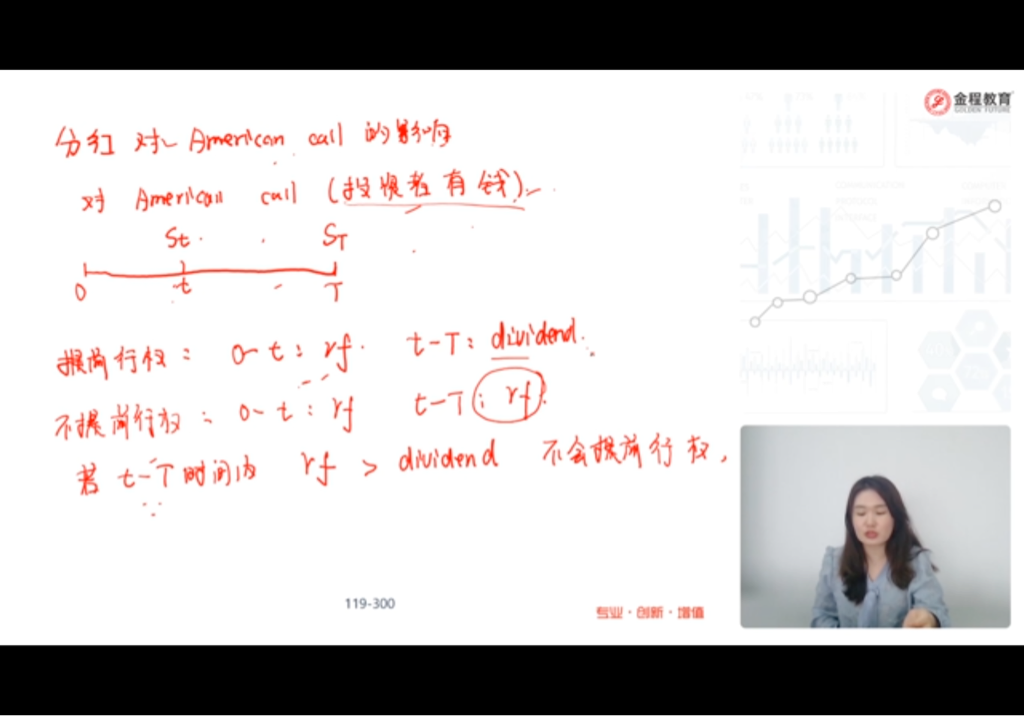 分红 对 American call 的影响
对 American call (投资者有钱).
St ST
0 t T
提前行权: 0-t: rf. t-T: dividend.
不提前行权: 0-t: rf t-T: rf.
若 t-T 时间内 rf > dividend 不会提前行权,
119-300
专业·创新·增值
金程教育
GOLDEN FUTURE